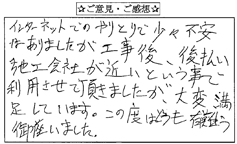 ☆ご意見・ご感想☆
インターネットでのやりとりで少々不安
はありましたが工事後、後払い
施工会社が近いという事で
利用させて頂きましたが、大変満
足しています。この度はどうも有難う
御座いました。